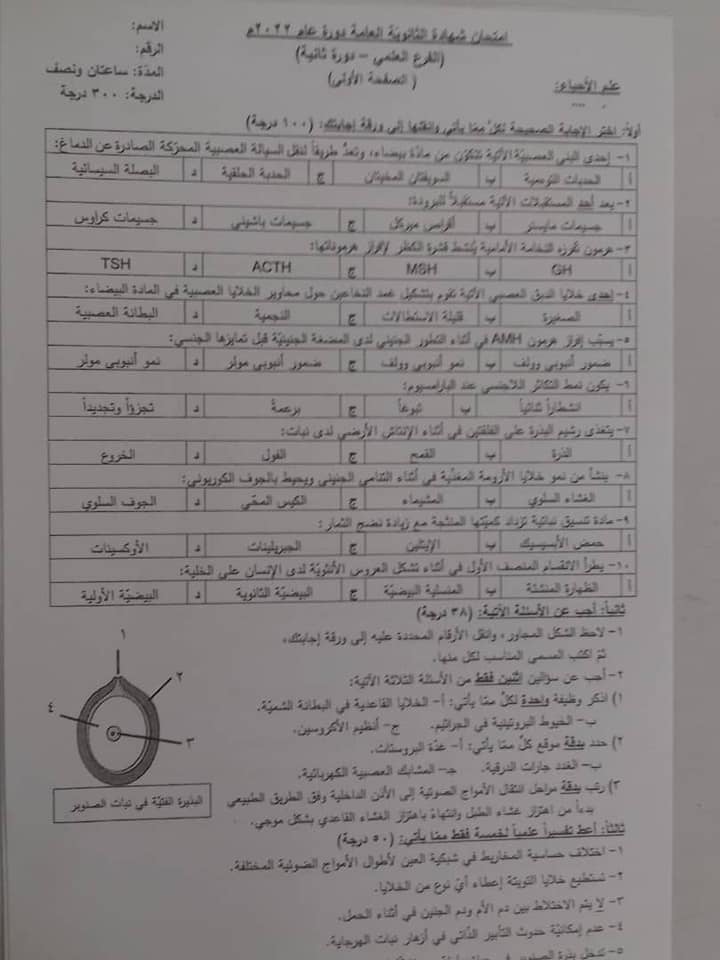 امتحان شهادة الثانوية العامة دورة عام ٢٠٢٢م
(الفرع العلمي – دورة ثانية)
(الصفحة الأولى)
علم الأحياء:
الاسم:
الرقم:
المدة: ساعتان ونصف
الدرجة: ٣٠٠ درجة
أولاً: اختر الإجابة الصحيحة لكلٍّ ممّا يأتي وانقلها إلى ورقة إجابتك: (١٠٠ درجة)
١- إحدى البنى العصبيّة الآتية تتكوّن من مادّة بيضاء، وتعدّ طريقاً لنقل السيالة العصبية المحرّكة الصادرة عن الدماغ:
أ الحدبات التوءمية ب السويقتان المخيتان ج الحدبة الحلقية د البصلة السيسائية
٢- يعد أحد المستقبلات الآتية مستقبلاً للبرودة:
أ جسيمات مايسنر ب أقراص ميركل ج جسيمات باشيني د جسيمات كراوس
٣- هرمون تفرزه النخامة الأمامية يُنشط قشرة الكظر لإفراز هرموناتها:
أ GH ب MSH ج ACTH د TSH
٤- إحدى خلايا الدبق العصبي الآتية تقوم بتشكيل غمد النخاعين حول محاوير الخلايا العصبية في المادة البيضاء:
أ الصغيرة ب قليلة الاستطالات ج النجمية د البطانة العصبية
٥- يسبّب إفراز هرمون AMH في أثناء التطور الجنيني لدى المضغة الجنينيّة قبل تمايزها الجنسي:
أ ضمور أنبوبي وولف ب نمو أنبوبي وولف ج ضمور أنبوبي مولر د نمو أنبوبي مولر
٦- يكون نمط التكاثر اللاجنسي عند البارامسيوم:
أ انشطاراً ثنائياً ب تبوغاً ج برعمةً د تجزؤاً وتجديداً
٧- يتغذى رشيم البذرة على الفلقتين في أثناء الإنتاش الأرضي لدى نبات:
أ الذرة ب القمح ج الفول د الخروع
٨- ينشأ من نمو خلايا الأرومة المغذّية في أثناء التنامي الجنيني ويحيط بالجوف الكوريوني:
أ الغشاء السلوي ب المشيماء ج الكيس المحّي د الجوف السلوي
٩- مادة تنسيق نباتية تزداد كميتها المنتَجة مع زيادة نضج الثمار:
أ حمض الأبسيسيك ب الإيتلين ج الجبريلينات د الأوكسينات
١٠- يطرأ الانقسام المنصف الأول في أثناء تشكل العروس الأنثويّة لدى الإنسان على الخلية:
أ الظهارة المنشئة ب المنسلية البيضيّة ج البيضيّة الثانوية د البيضيّة الأولية
ثانياً: أجب عن الأسئلة الآتية: (٣٨ درجة)
١- لاحظ الشكل المجاور، وانقل الأرقام المحددة عليه إلى ورقة إجابتك،
ثمّ اكتب المسمى المناسب لكل منها.
٢- أجب عن سؤالين اثنين فقط من الأسئلة الثلاثة الآتية:
١) اذكر وظيفة واحدة لكلّ ممّا يأتي: أ- الخلايا القاعدية في البطانة الشميّة.
ب- الخيوط البروتينية في الجراثيم. ج- أنظيم الأكروسين.
٢) حدد بدقة موقع كلّ ممّا يأتي: أ- غدّة البروستات.
ب- الغدد جارات الدرقية. جـ- المشابك العصبية الكهربائية.
٣) رتب بدقة مراحل انتقال الأمواج الصوتية إلى الأذن الداخلية وفق الطريق الطبيعي
بدءاً من اهتزاز غشاء الطبل وانتهاءً باهتزاز الغشاء القاعدي بشكل موجي.
١
٢
٣
٤
البذيرة الفتيّة في نبات الصنوبر
ثالثاً: أعط تفسيراً علمياً لخمسة فقط ممّا يأتي: (٥٠ درجة)
١- اختلاف حساسية المخاريط في شبكية العين لأطوال الأمواج الضوئية المختلفة.
٢- تستطيع خلايا التويتة إعطاء أيّ نوع من الخلايا.
٣- لا يتم الاختلاط بين دم الأم ودم الجنين في أثناء الحمل.
٤- عدم إمكانيّة حدوث التأبير الذّاتي في أزهار نبات الهرجاية.
٥- تدخل بذرة الصنوبر في